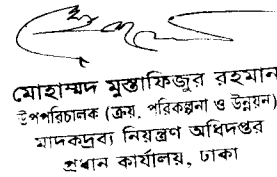 মোহাম্মদ মুস্তাফিজুর রহমান
উপপরিচালক (ক্রয়, পরিকল্পনা ও উন্নয়ন)
মাদকদ্রব্য নিয়ন্ত্রণ অধিদপ্তর
প্রধান কার্যালয়, ঢাকা